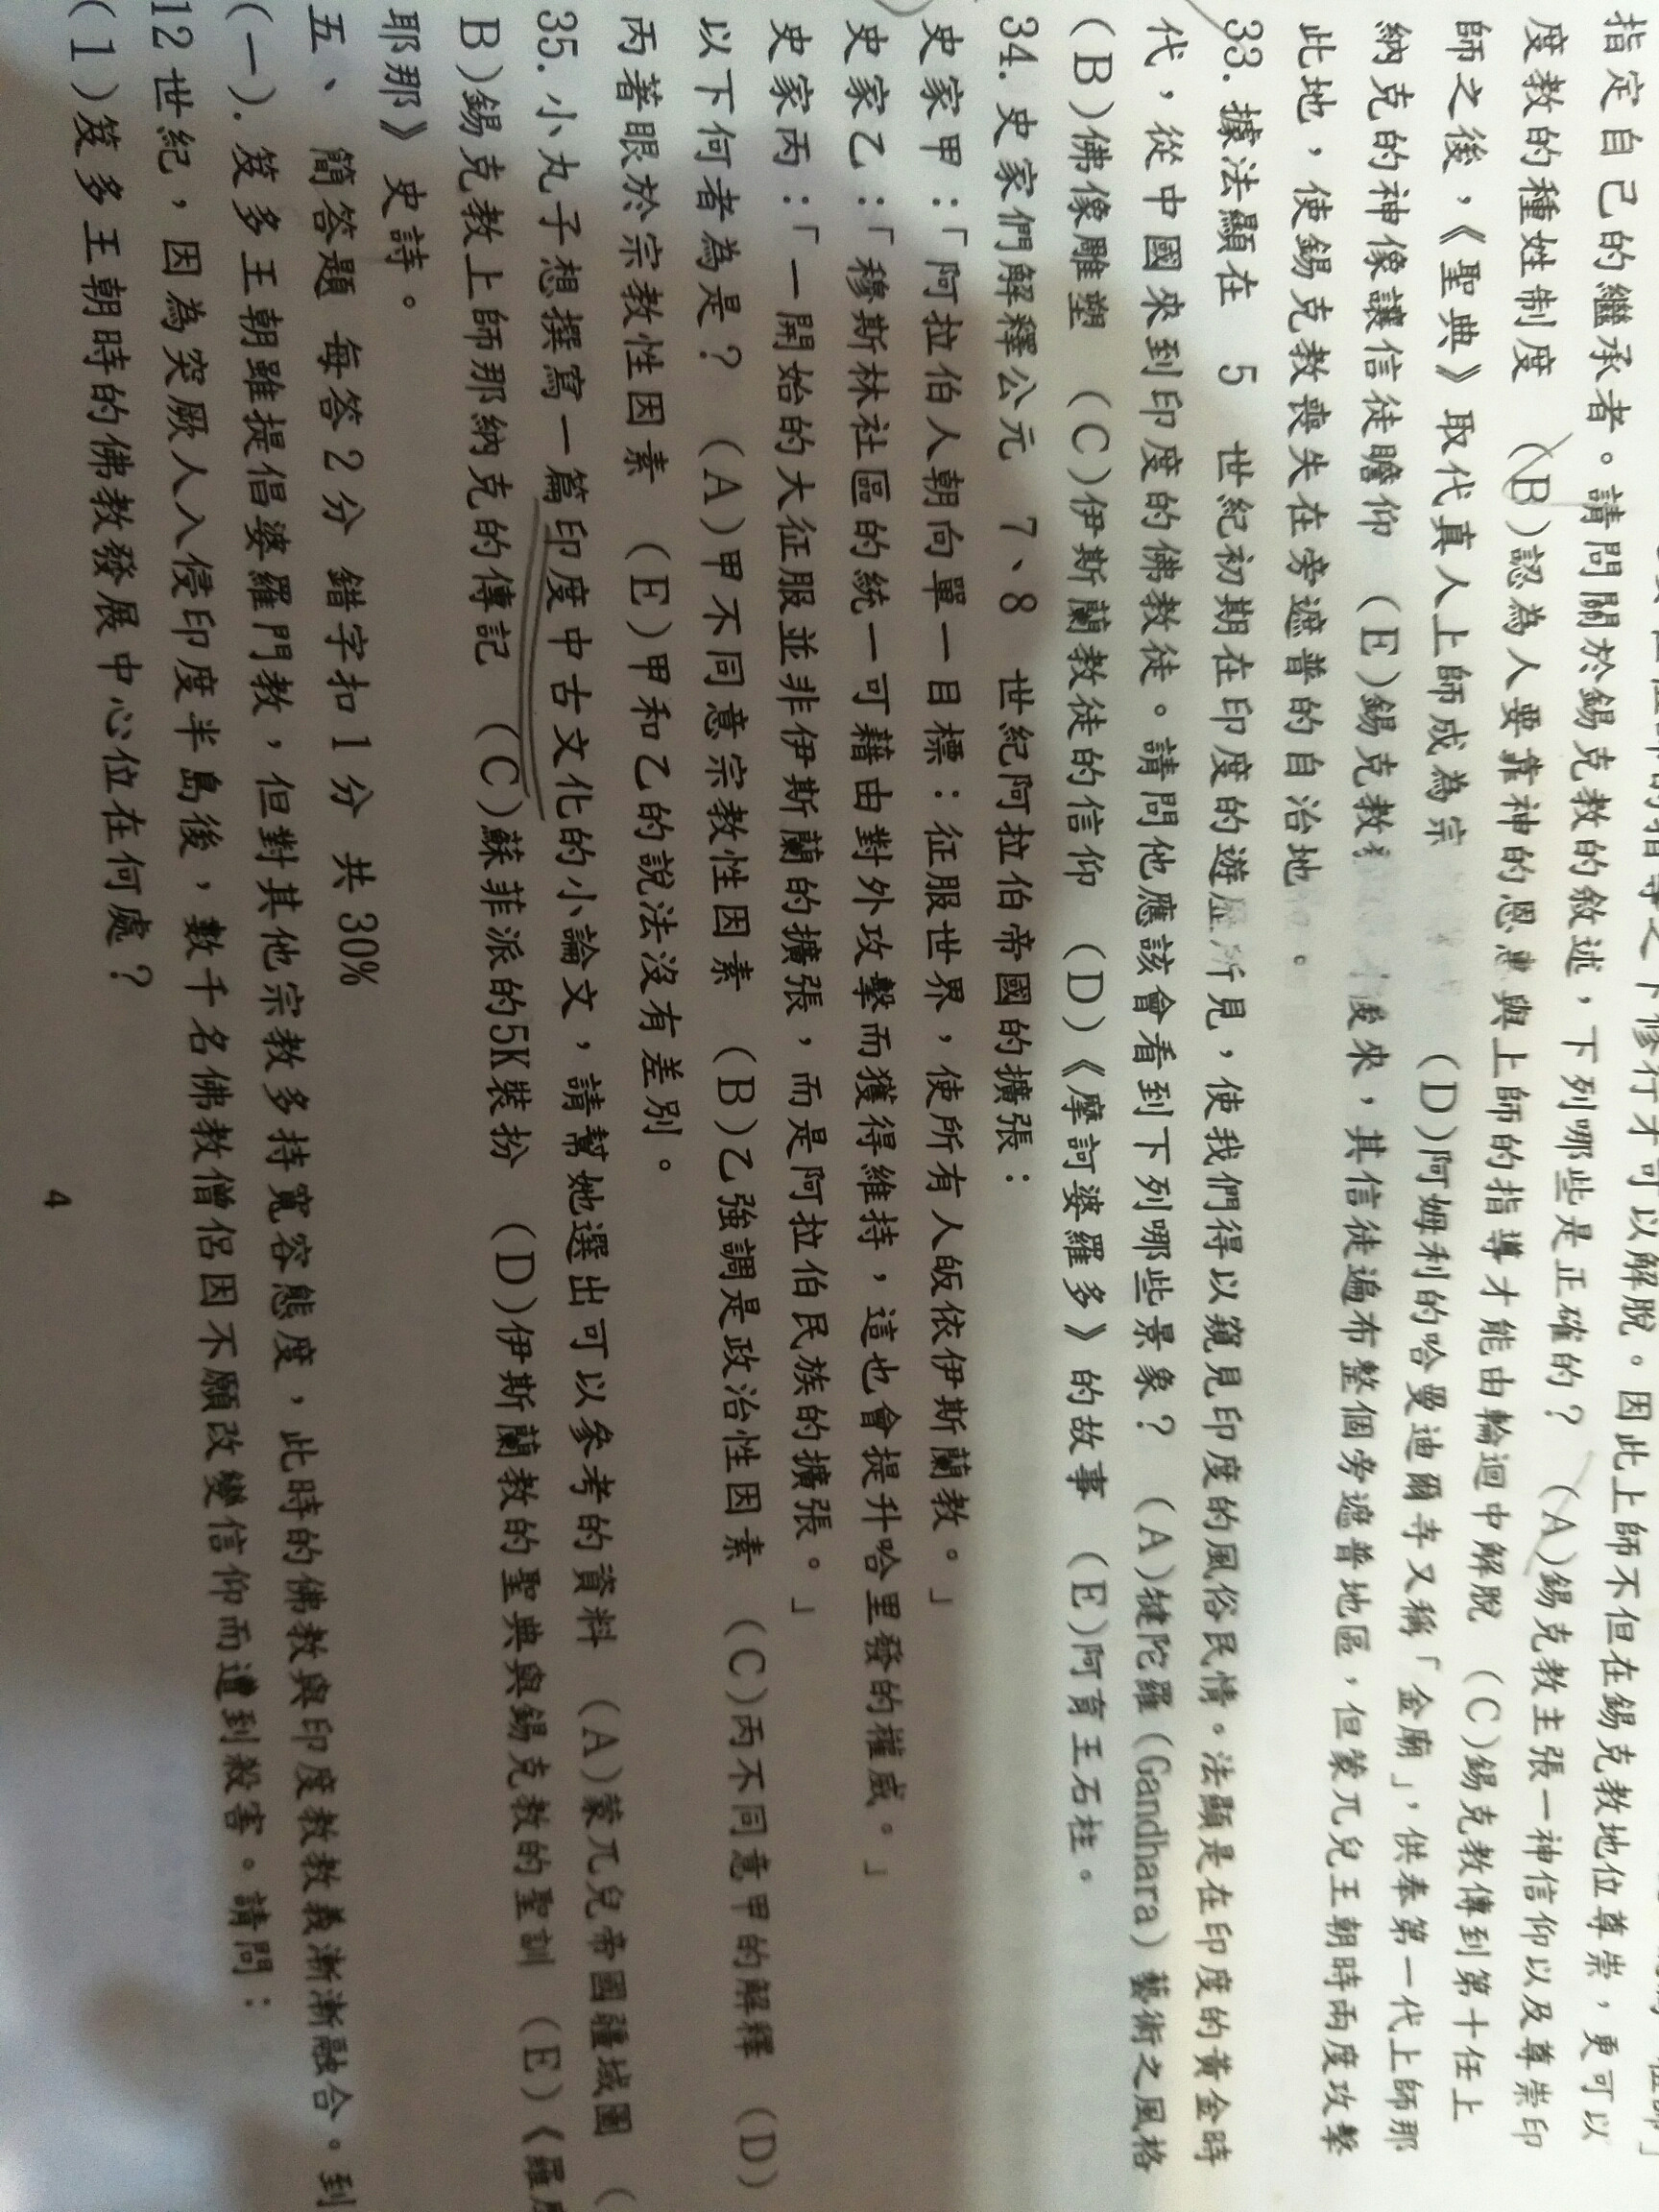 修行才可以解脫。因此上師不但在錫克教地位尊崇，更可以
指定自己的繼承者。請問關於錫克教的敘述，下列哪些是正確的？ (A)錫克教主張一神信仰以及尊崇印
度教的種姓制度 (B)認為人要靠神的恩惠與上師的指導才能由輪迴中解脫 (C)錫克教傳到第十任上
師之後，《聖典》取代真人上師成為宗 (D)阿姆利的哈曼迪爾寺又稱「金廟」，供奉第一代上師那
納克的神像讓信徒瞻仰 (E)錫克教 後來，其信徒遍布整個旁遮普地區，但蒙兀兒王朝時兩度攻擊
此地，使錫克教喪失在旁遮普的自治地 。
33. 據法顯在 5 世紀初期在印度的遊歷所見，使我們得以窺見印度的風俗民情。法顯是在印度的黃金時
代，從中國來到印度的佛教徒。請問他應該會看到下列哪些景象？ (A)犍陀羅(Gandhara)藝術之風格
(B)佛像雕塑 (C)伊斯蘭教徒的信仰 (D)《摩訶婆羅多》的故事 (E)阿育王石柱。
34. 史家們解釋公元 7、8 世紀阿拉伯帝國的擴張：
史家甲：「阿拉伯人朝向單一目標：征服世界，使所有人皈依伊斯蘭教。」
史家乙：「穆斯林社區的統一可藉由對外攻擊而獲得維持，這也會提升哈里發的權威。」
史家丙：「一開始的大征服並非伊斯蘭的擴張，而是阿拉伯民族的擴張。」
以下何者為是？ (A)甲不同意宗教性因素 (B)乙強調是政治性因素 (C)丙不同意甲的解釋 (D)
丙著眼於宗教性因素 (E)甲和乙的說法沒有差別。
35. 小丸子想撰寫一篇印度中古文化的小論文，請幫她選出可以參考的資料 (A)蒙兀兒帝國疆域圖 (
B)錫克教上師那納克的傳記 (C)蘇菲派的5K裝扮 (D)伊斯蘭教的聖典與錫克教的聖訓 (E)《羅摩
耶那》史詩。
五、 簡答題 每答 2 分 錯字扣 1 分 共 30%
(一). 笈多王朝雖提倡婆羅門教，但對其他宗教多持寬容態度，此時的佛教與印度教教義漸漸融合。到
12 世紀，因為突厥人入侵印度半島後，數千名佛教僧侶因不願改變信仰而遭到殺害。請問：
(1)笈多王朝時的佛教發展中心位在何處？
4